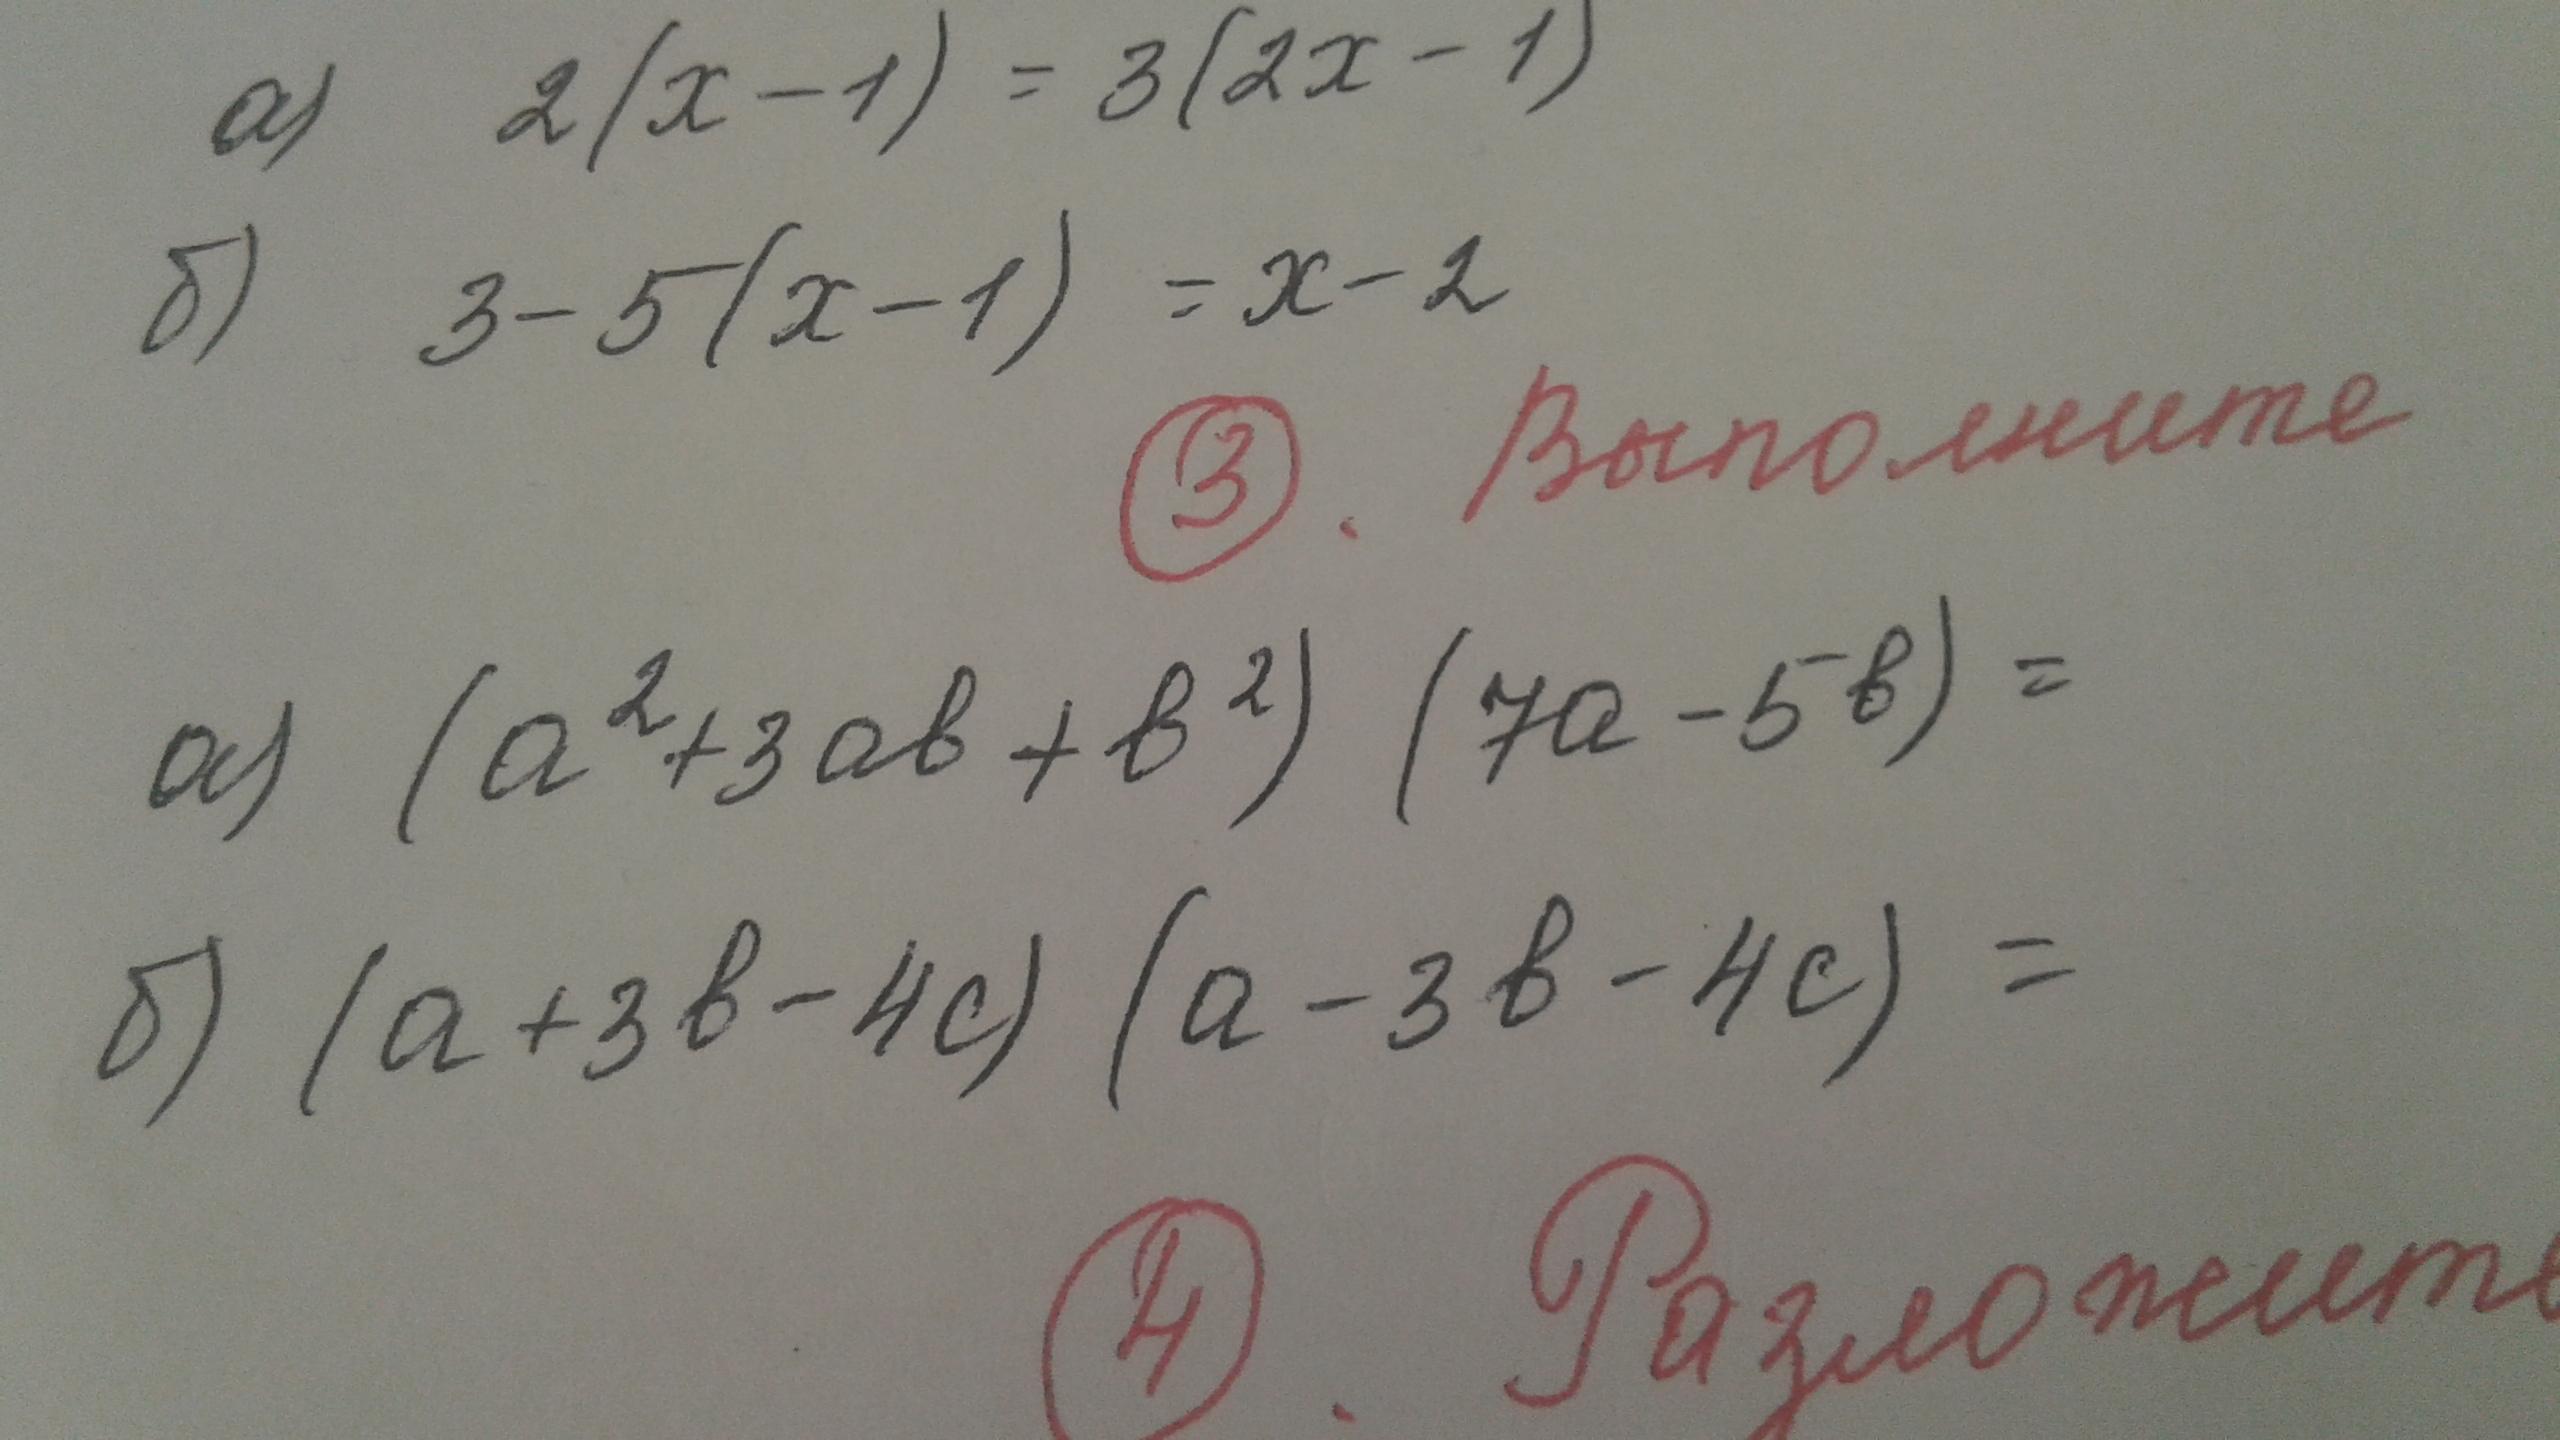 а) 2(x-1) = 3(2x-1)
б) 3-5(x-1) = x-2
3. Выполните
а) (a²+3ab+b²) (7a-5b) =
б) (a+3b-4c) (a-3b-4c) =
4. Разложите